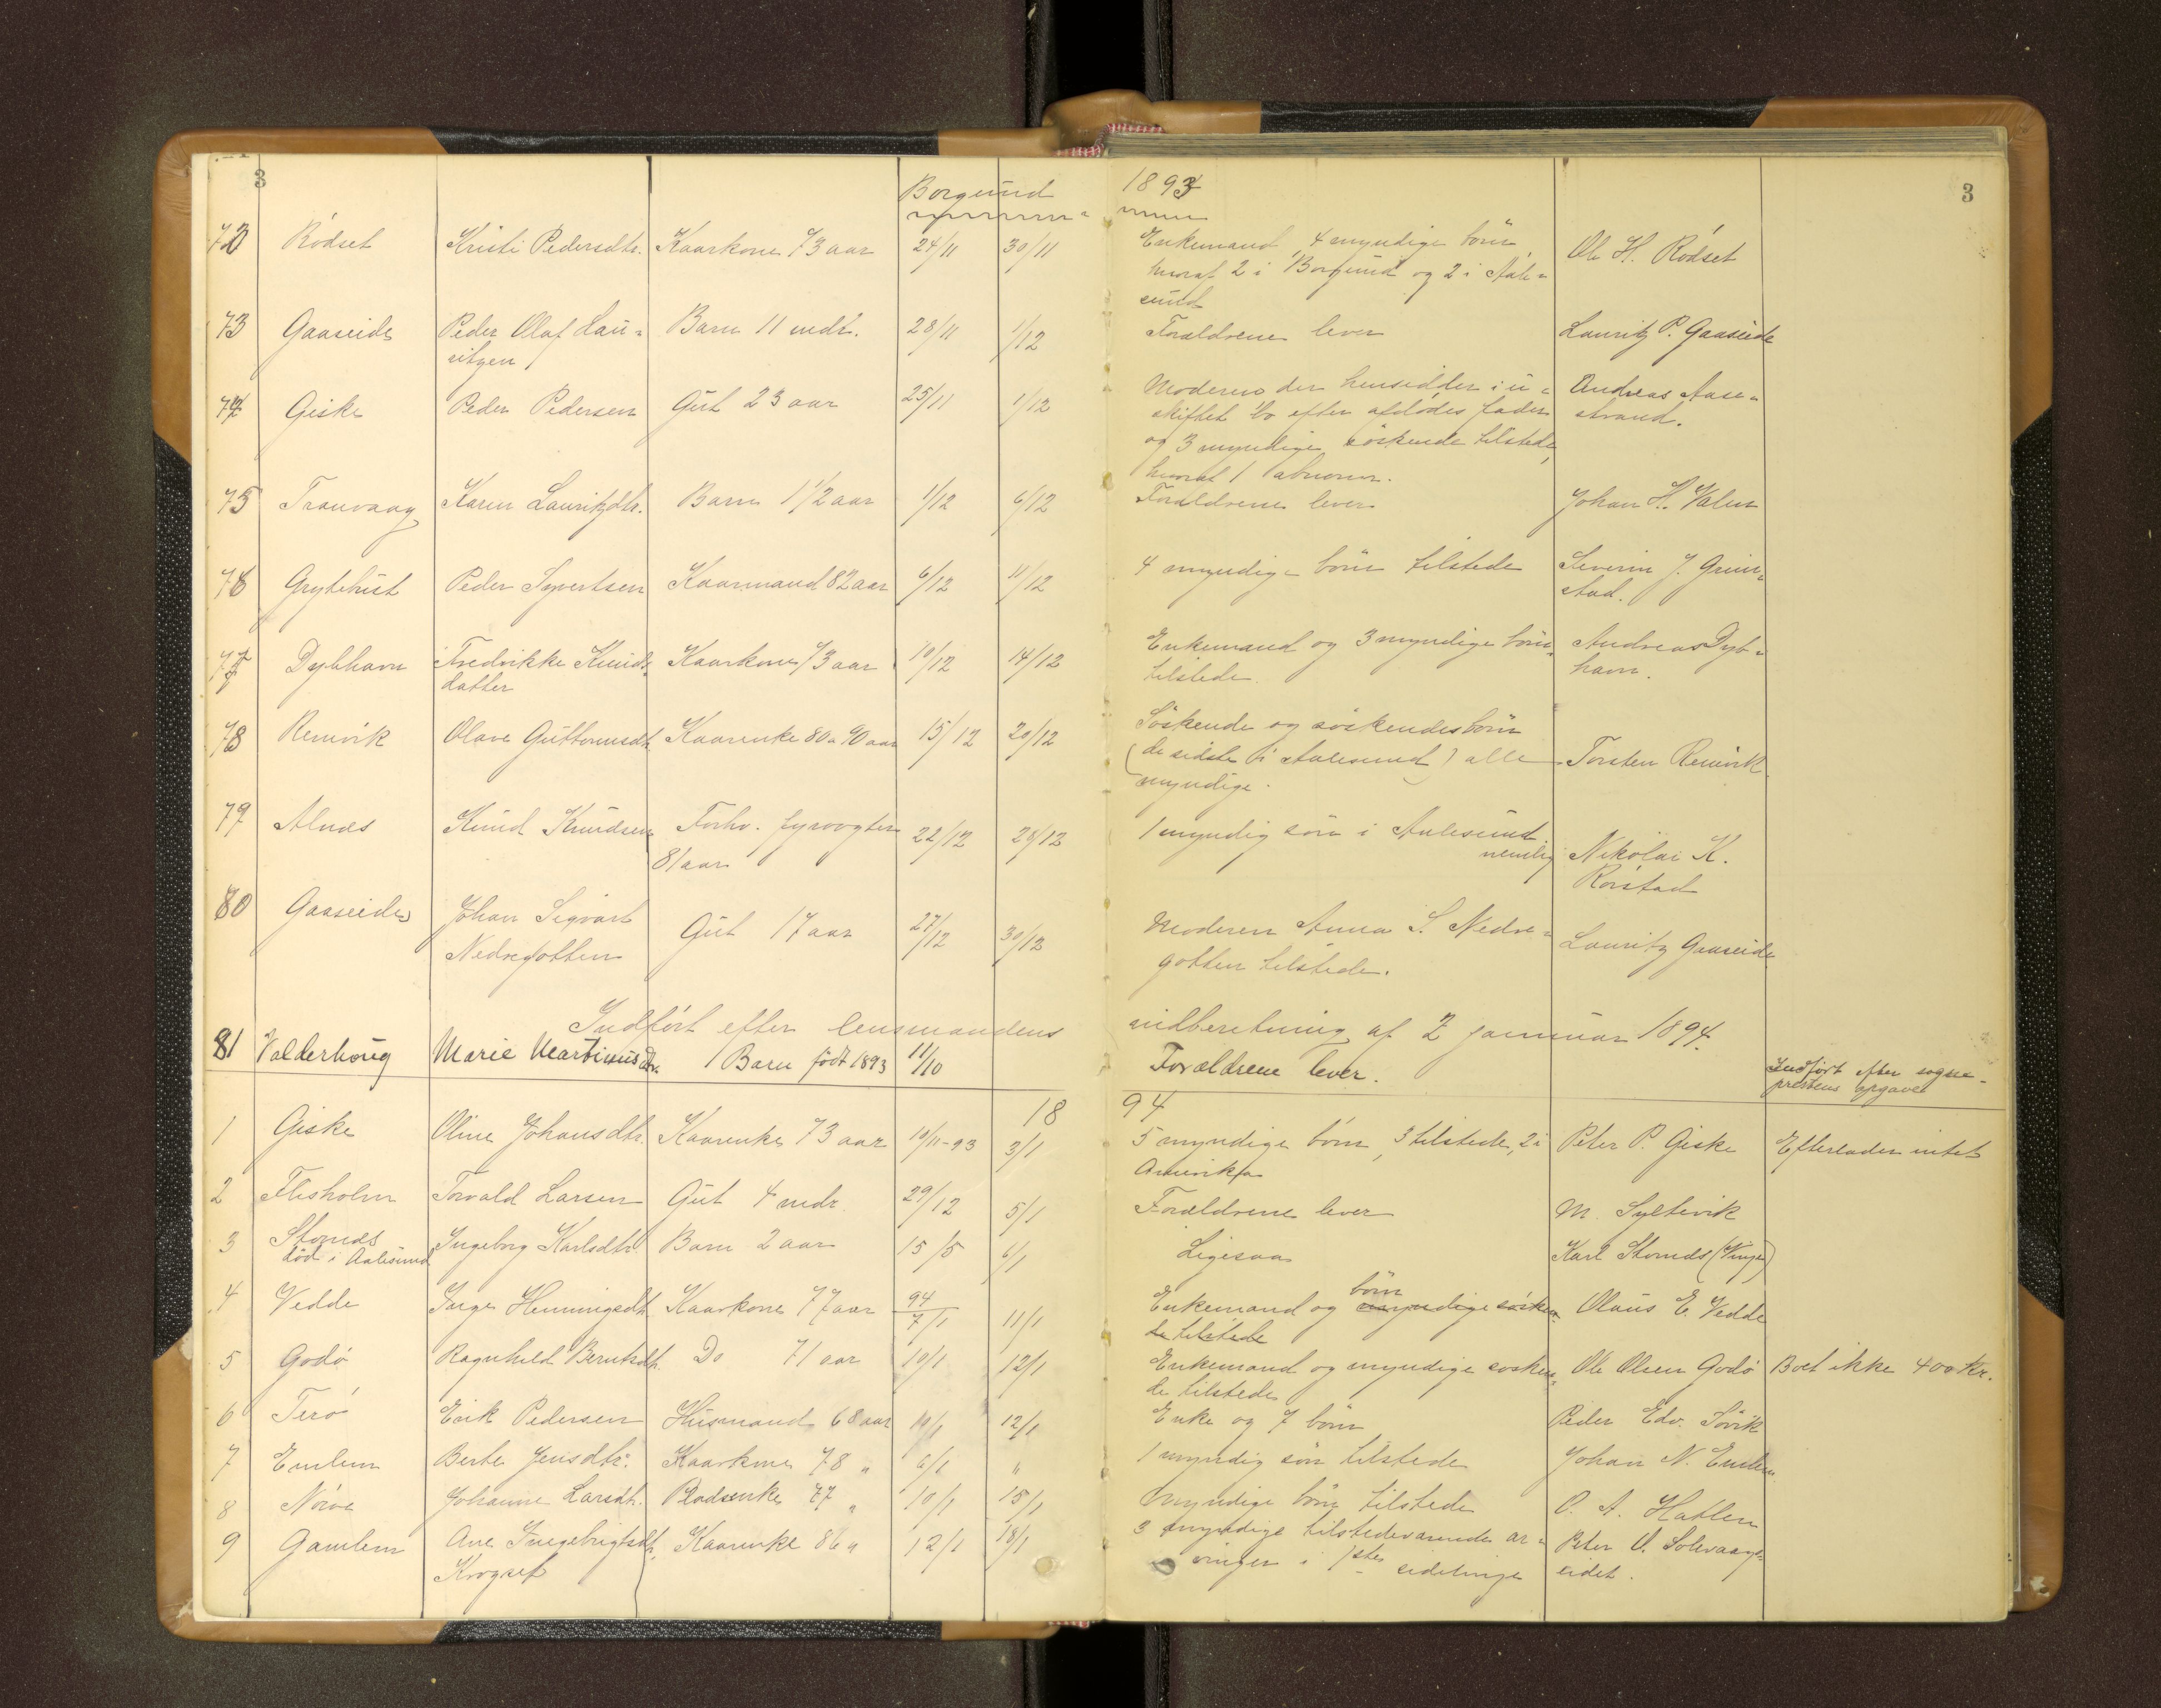 3
Borgund 1893
3
72 Rödset Kristi Pedersdtr. Kaarkone 73 aar 24/11 30/11 Enkemand, 4 myndige börn Ole H. Rödset
hvoraf 2 i Borgund og 2 i Aale-
sund
73 Gaaseide Peder Olaf Lau- Barn 11 mdr. 28/11 1/12 Forældrene lever Lauritz P. Gaaseide
ritzen
74 Giske Peder Pedersen Gut 23 aar 25/11 1/12 Moderen der hensidder i u- Andreas Aase-
skiftet bo efter afdödes fader strand.
og 3 myndige söskende tilstede,
hvoraf 1 abnorm.
75 Tranvaag Karen Lauritzdtr. Barn 1 1/2 aar 1/12 6/12 Forældrene lever Johan H. Valen
76 Grytehust Peder Syvertsen Kaarmand 82 aar 6/12 11/12 4 myndige börn tilstede Severin J. Grim-
stad.
77 Dybhavn Fredrikke Knuds- Kaarkone 73 aar 10/12 14/12 Enkemand og 3 myndige börn Andreas Dyb-
datter tilstede. havn.
78 Remvik Olave Guttormsdtr. Kaarenke 80 a 90 aar 15/12 20/12 Söskende og söskendesbörn
(de sidste i Aalesund) alle Torsten Remvik
myndige.
79 Alnæs Knud Knudsen Forhv. fyrvogter 22/12 28/12 1 myndig sön i Aalesund
81 aar nemlig Nikolai K.
Rörstad
80 Gaaseide Johan Sigvart Gut 17 aar 27/12 30/12 Moderen Anna S. Nedre- Lauritz Gaaseide
Nedregotten gotten tilstede.
Indfört efter lensmandens indberetning af 2 januar 1894.
81 Valderhoug Marie Martinusdtr. 1 Barn födt 1893 11/10 Forældrene lever. Indfört efter sogne-
prestens opgave
18 94
1 Giske Oline Johansdtr. Kaarenke 73 aar 19/11-93 3/1 5 myndige börn, 3 tilstede, 2 i Peter P. Giske Efterlader intet
Amerika
2 Flisholm Torvald Larsen Gut 4 mdr. 29/12 5/1 Forældrene lever M. Syltevik
3 Stornes Ingeborg Karlsdtr. Barn 2 aar 15/5 6/1 Ligesaa Karl Stornes (Vinje)
död i Aalesund
4 Vedde Inge Henningsdtr. Kaarkone 77 aar 94 7/1 11/1 Enkemand og börn myndige sösken- Olaus E. Vedde
de tilstede
5 Godö Ragnhild Berntsdtr. Do 71 aar 10/1 12/1 Enkemand og myndige sösken- Ole Olsen Godö Boet ikke 400 kr.
de tilstede
6 Terö Erik Pedersen Husmand 68 aar 10/1 12/1 Enke og 7 börn Peder Edv. Sövik
7 Emlem Berte Jensdtr. Kaarkone 78 " 6/1 " 1 myndig sön tilstede Johan N. Emlem
8 Nörve Johanne Larsdtr. Pladsenke 77 " 10/1 15/1 Myndige börn tilstede O. A. Hatlen
9 Gamlem Ane Ingebrigtsdtr. Kaarenke 86 " 12/1 18/1 3 myndige tilstedeværende ar- Peter O. Solevaags-
Krogset vinger i 1ste sidelinje eidet.